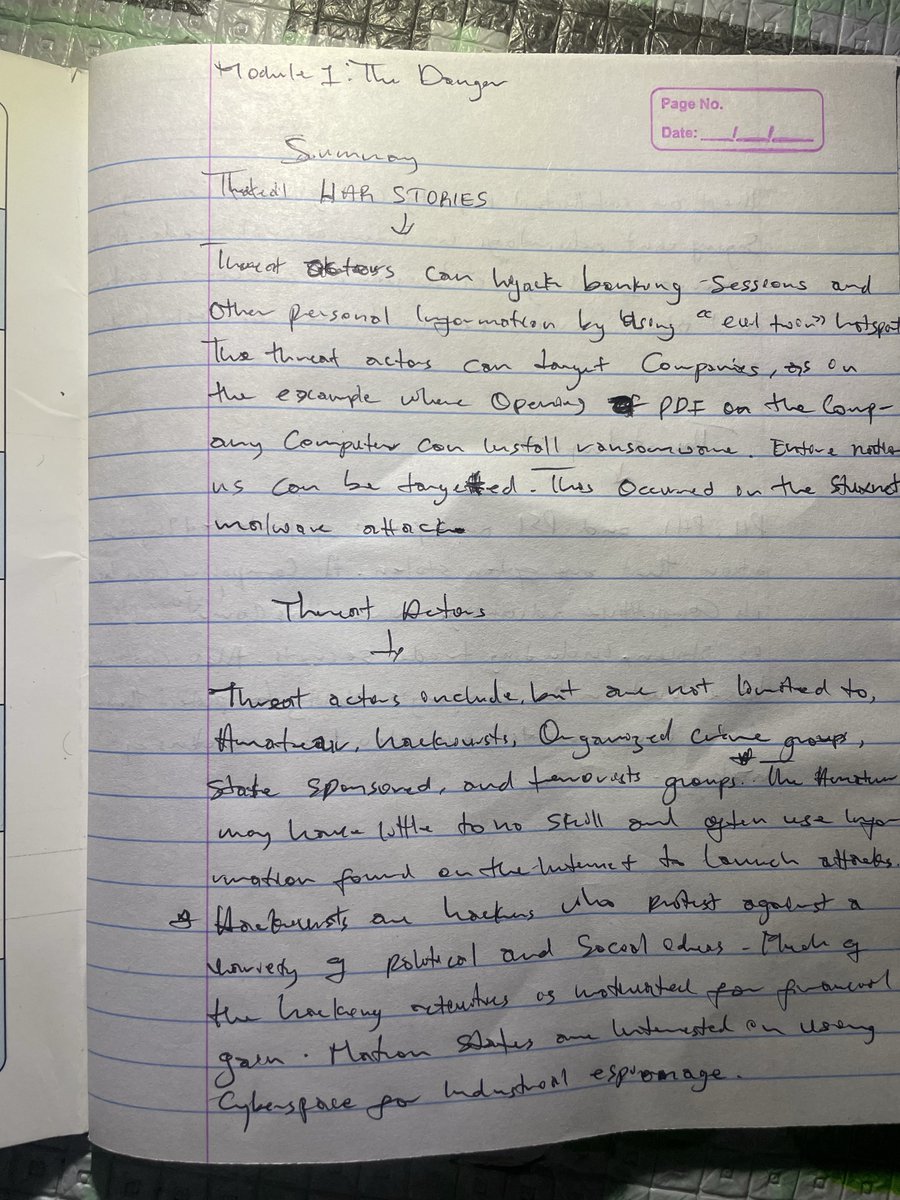 Module 1: The Danger
Page No.
Date: ___/___/___
Summary
WAR STORIES
Threat actors can hijack banking sessions and
other personal information by using "evil twin" hotspot
The threat actors can target Companies, as on
the example where Opening PDF on the Comp-
any Computer can install ransomware. Entire natio
ns can be targetted. This occurred on the Stuxnet
malware attack
Threat Actors
Threat actors include, but are not limited to,
Amateur, hacktivists, Organized crime groups,
state sponsored, and terrorists groups. The Amateur
may have little to no skill and often use infor
mation found on the Internet to launch attacks.
Hacktivists are hackers who protest against a
variety of political and Social ideas - Much of
the hacking activities is motivated for financial
gain. Nation States are interested on using
Cyberspace for Industrial espionage.